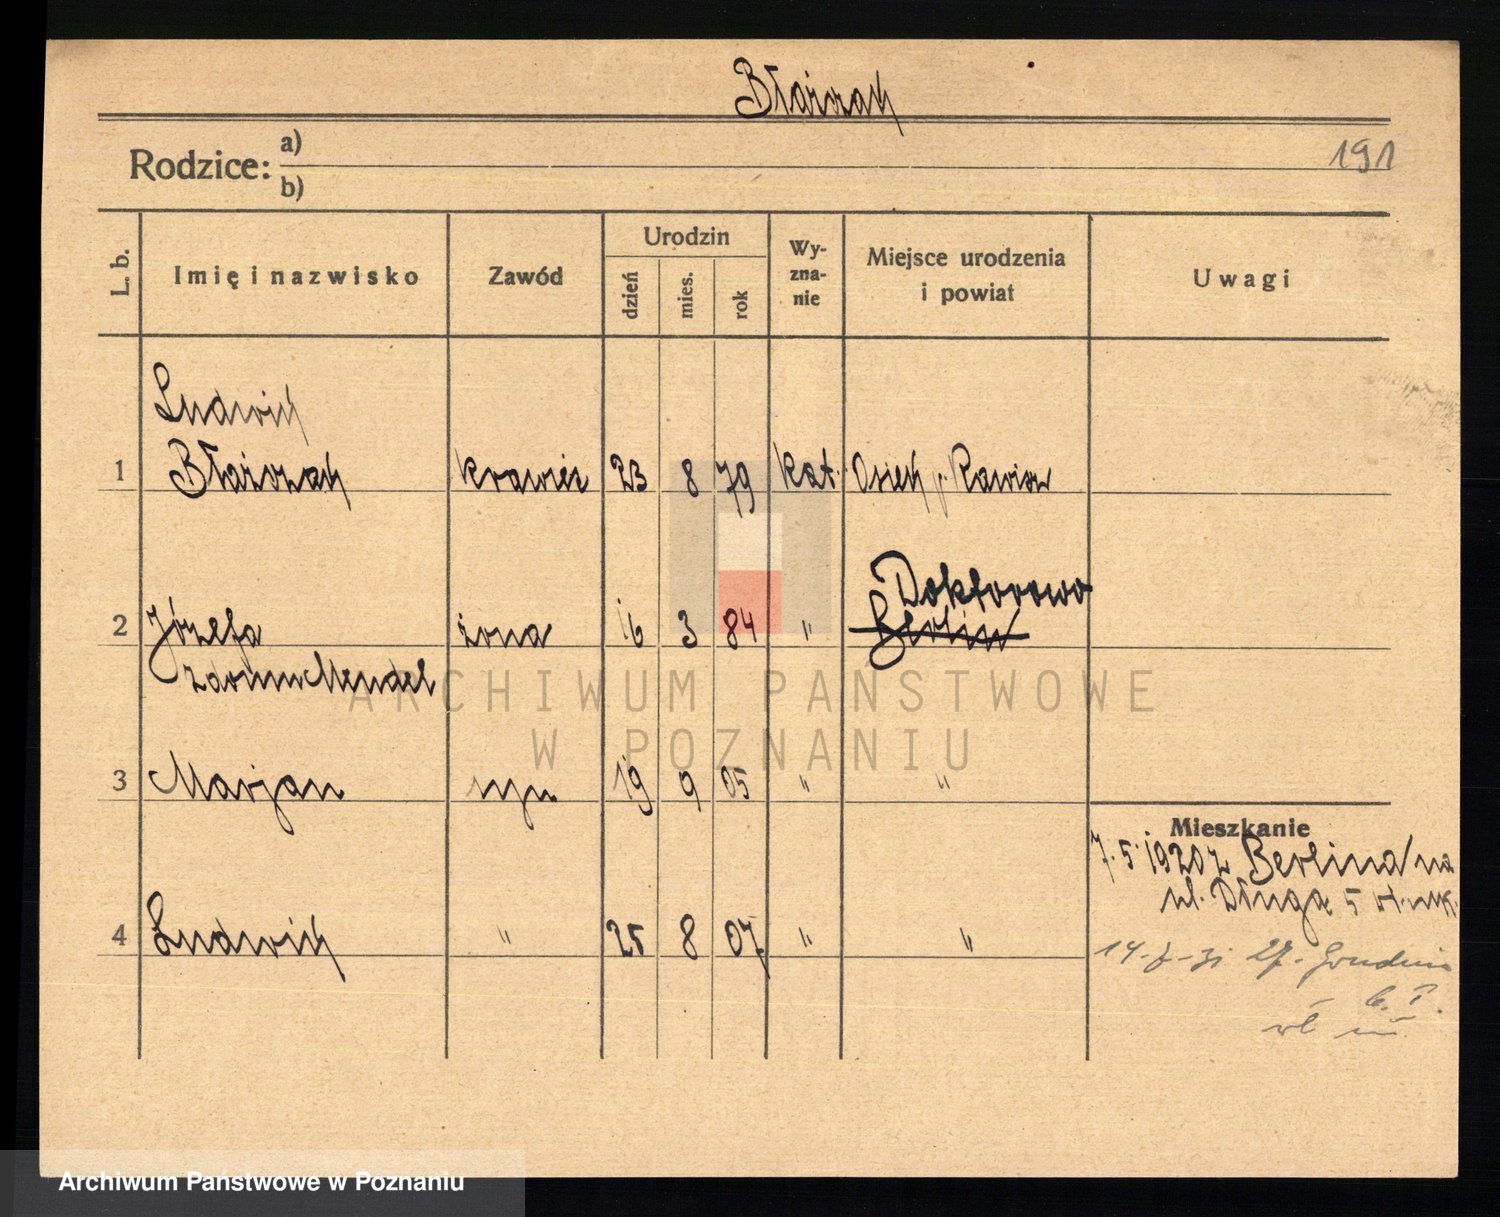 Błażczak
Rodzice: a)
b)
191
L. b.
Imię i nazwisko
Zawód
Urodzin
dzień
mies.
rok
Wy-
zna-
nie
Miejsce urodzenia
i powiat
Uwagi
Ludwik
1 Błażczak krawiec 23 8 79 kat. Osiek p. Rawicz
Doktorowo
2 Józefa żona 16 3 84 " Berlin
Mendel
3 Marjan syn 19 9 05 " "
Mieszkanie
7.5.1920 z Berlina na
ul. Długa 5
4 Ludwik " 25 8 07 " "
27. Grudnia
ARCHIWUM PAŃSTWOWE
W POZNANIU
Archiwum Państwowe w Poznaniu